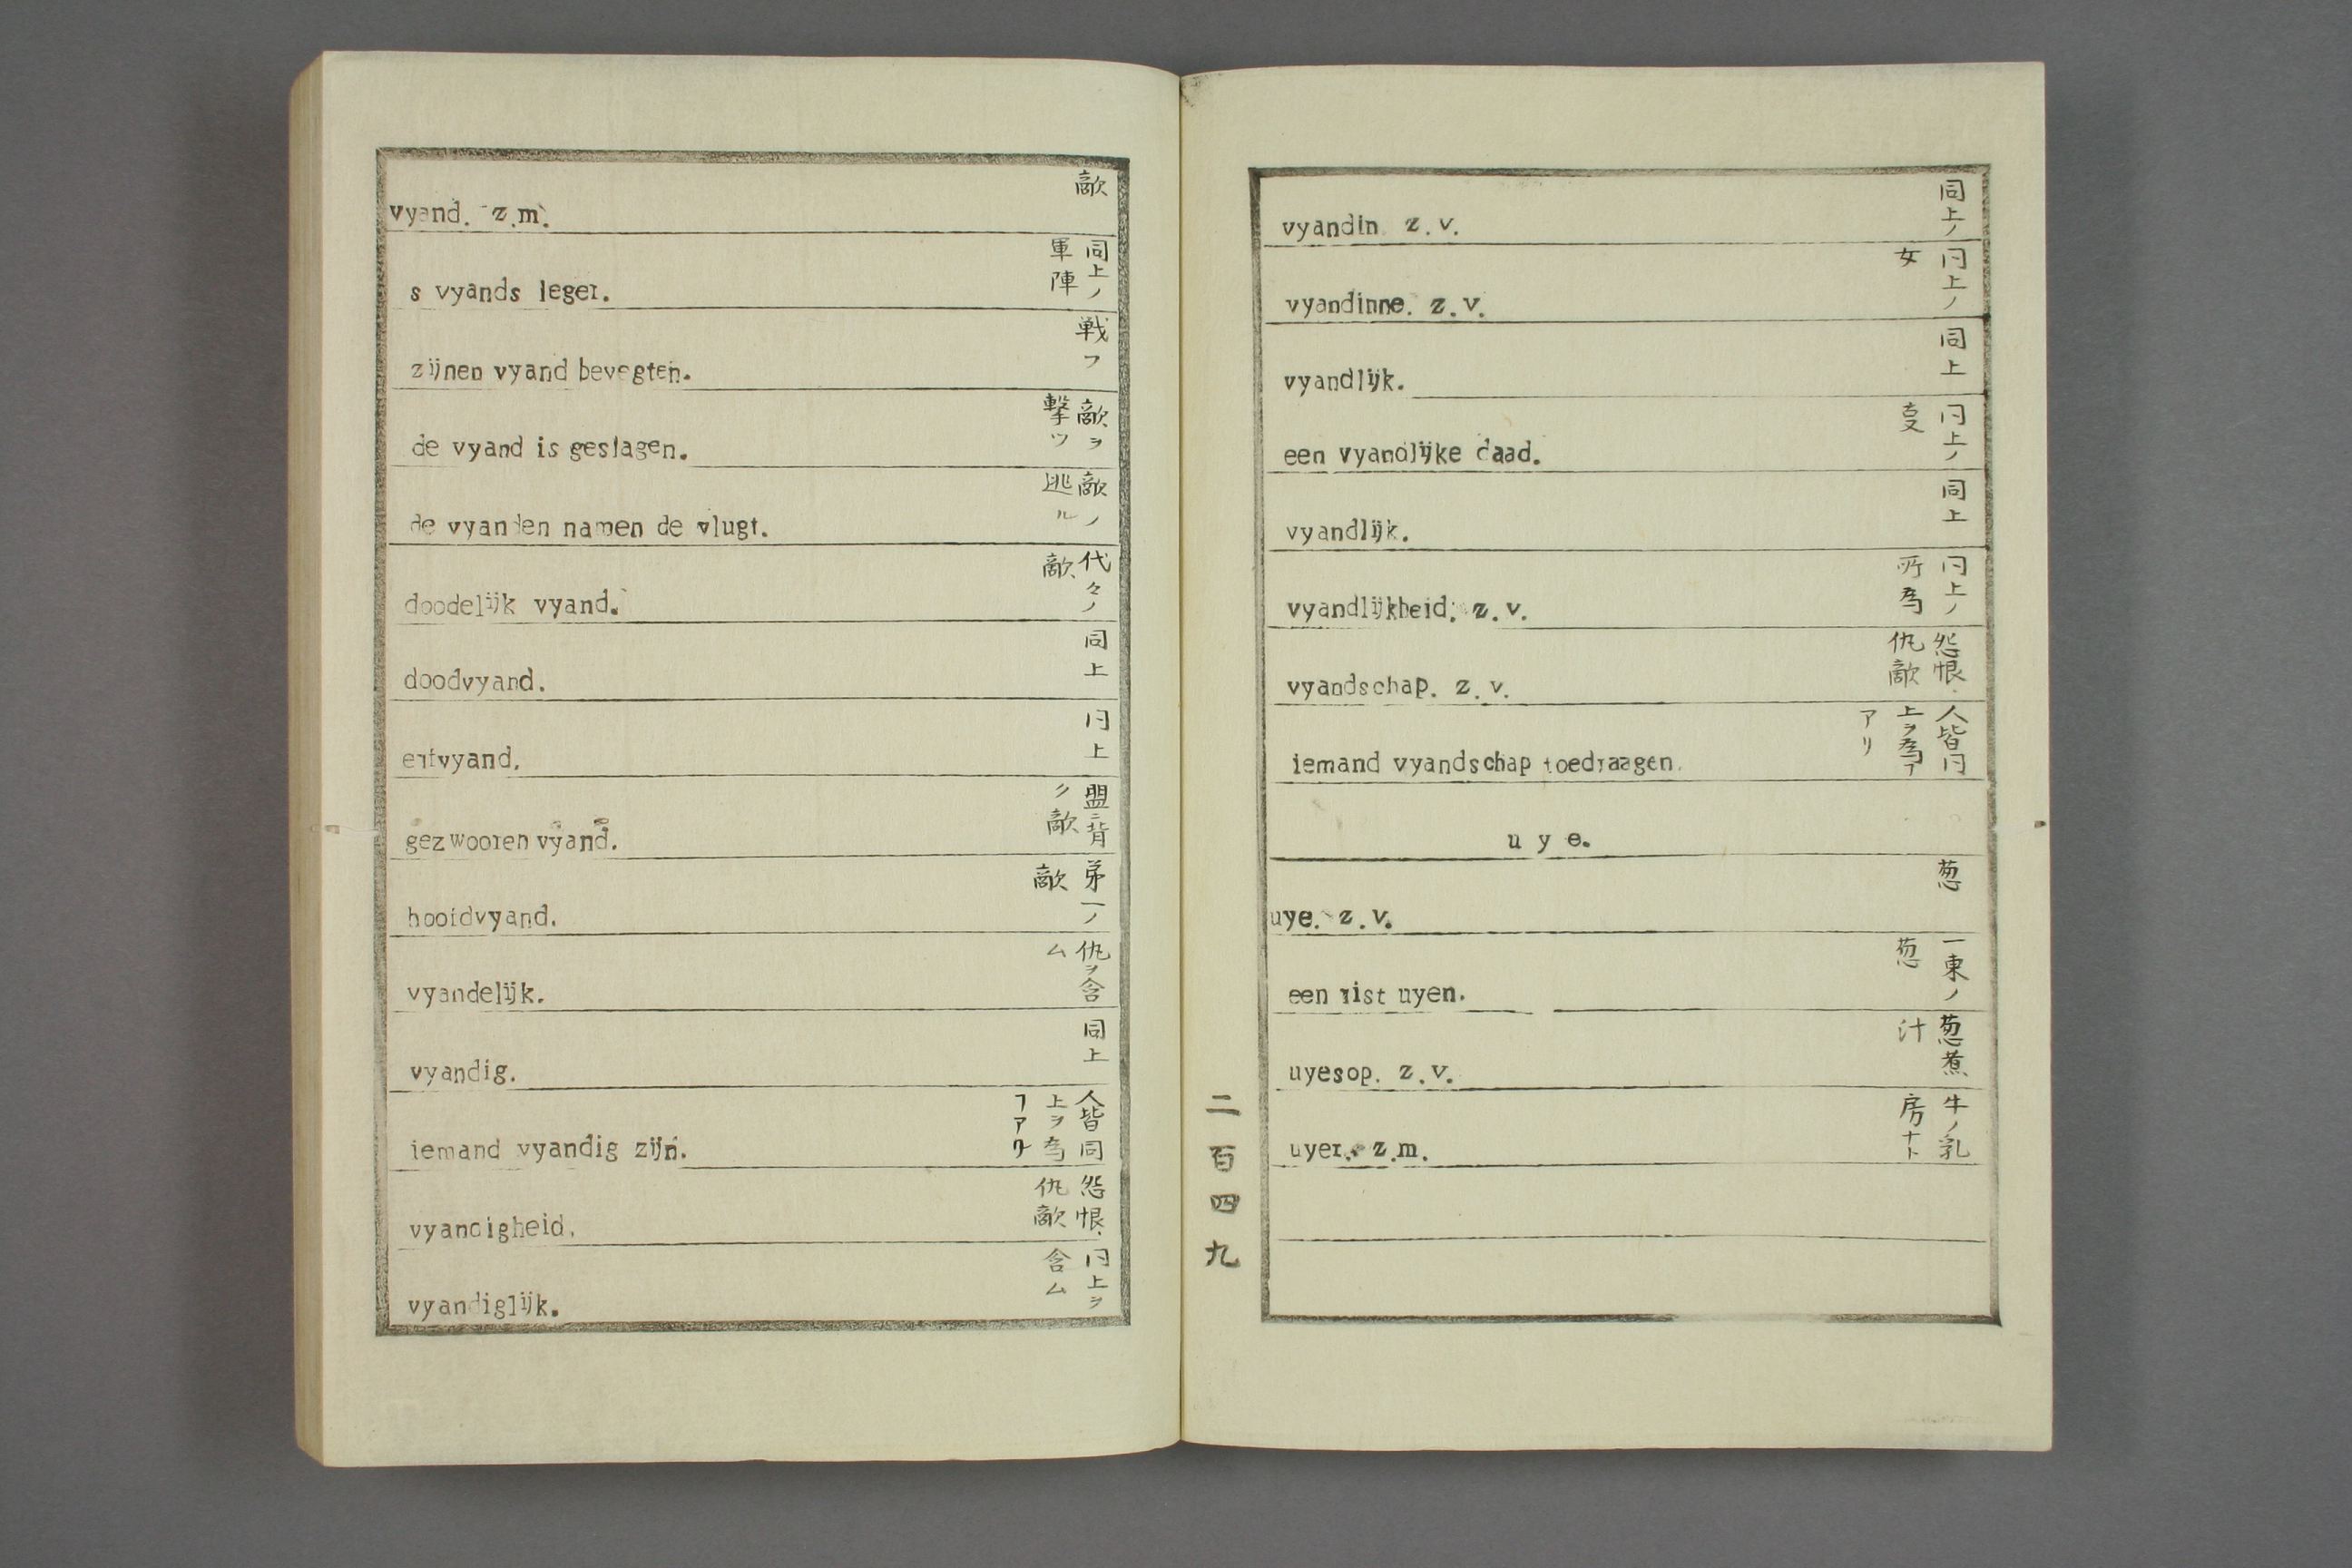 vyand. z.m.
敵
s vyands leger.
同上ノ
軍陣
zijnen vyand bevegten.
戦フ
de vyand is geslagen.
敵ヲ
撃ツ
de vyanden namen de vlugt.
敵ノ
逃ル
doodelijk vyand.
代々ノ
敵
doodvyand.
同上
erfvyand.
同上
gezwooren vyand.
盟ニ背
ク敵
hoofdvyand.
第一ノ
敵
vyandelijk.
仇ヲ含
ム
vyandig.
同上
iemand vyandig zijn.
人皆同
上ヲ為
ヿアリ
vyandigheid.
怨恨.
仇敵
vyandiglijk.
同上ヲ
含ム
vyandin z.v.
同上ノ
vyandinne. z.v.
同上ノ
女
vyandlijk.
同上
een vyandlijke daad.
同上ノ
vyandlijk.
同上
vyandlijkheid. z.v.
同上ノ
所為
vyandschap. z.v.
怨恨.
仇敵
iemand vyandschap toedraagen.
人皆同
上ヲ為ヿ
アリ
uye.
uye. z.v.
葱
een rist uyen.
一束ノ
葱
uyesop. z.v.
葱煮
汁
uyer. z.m.
牛ノ乳
房ナト
二百四九